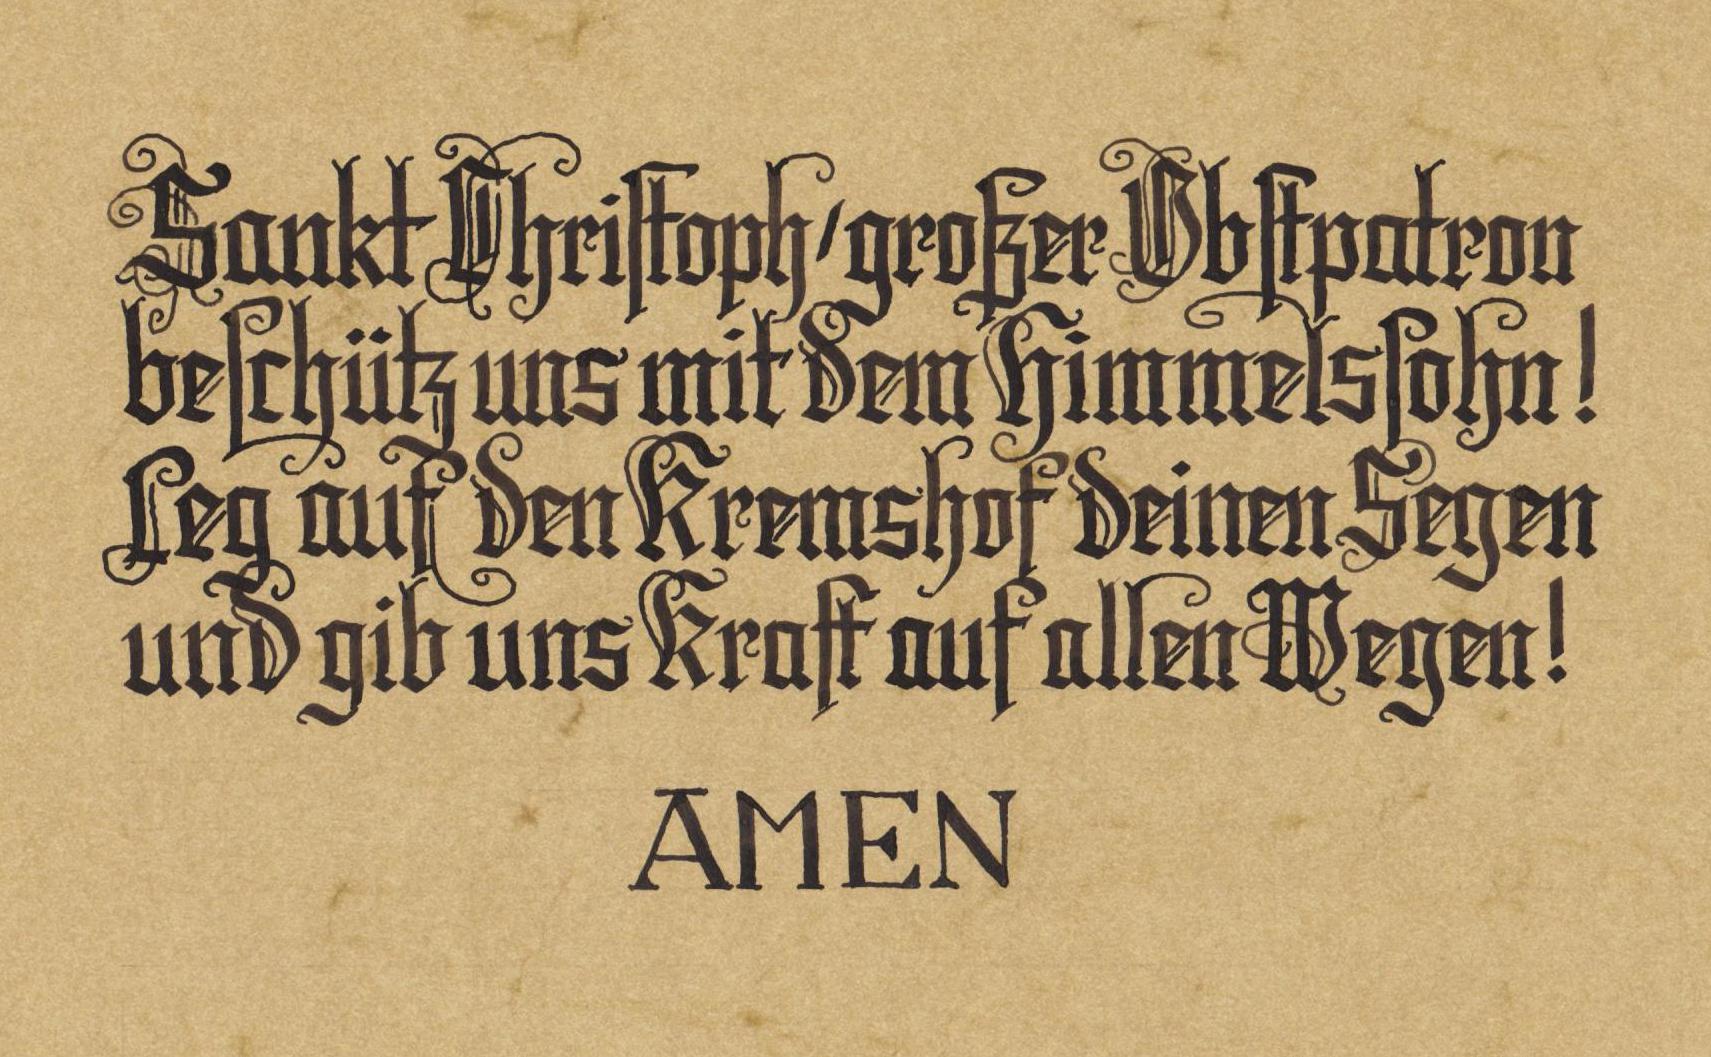 Sankt Christoph / großer Obstpatron
beschütz uns mit dem Himmelssohn!
Leg auf den Kremshof deinen Segen
und gib uns Kraft auf allen Wegen!
AMEN